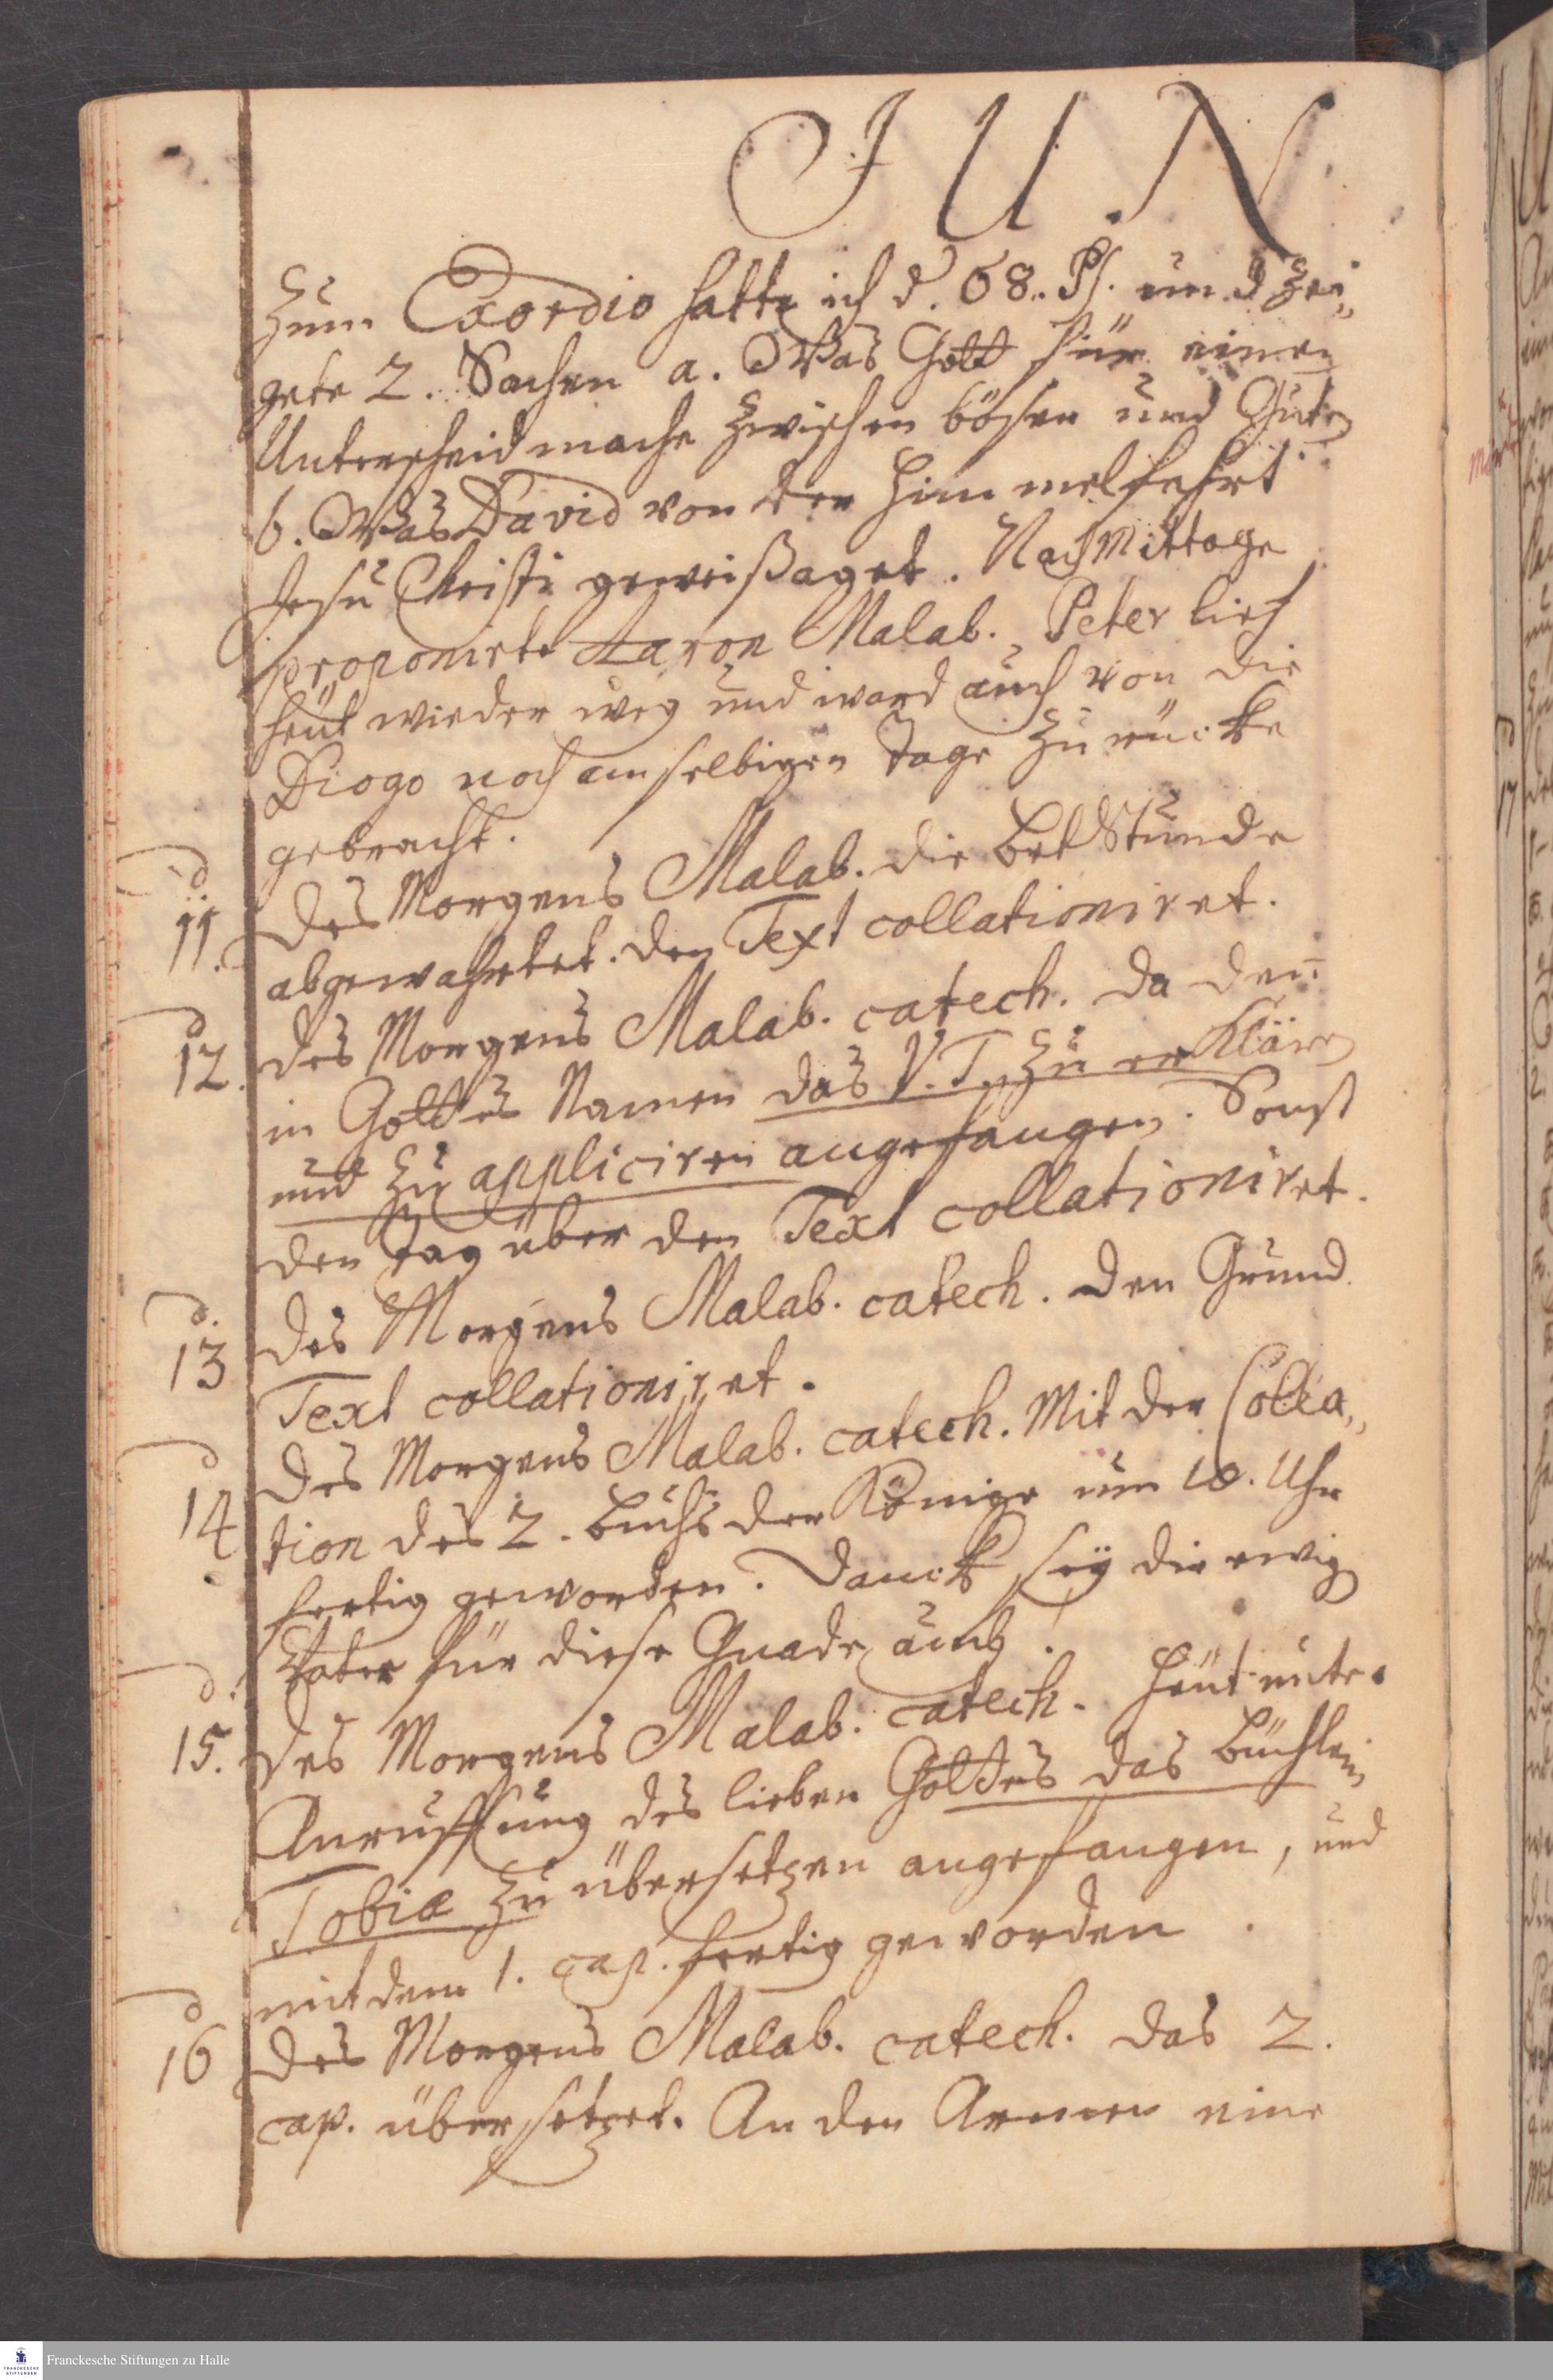 JUN
Zum Exordio hatte ich d. 68. Ps. und zei„
gete 2. Sachen a. Was Gott für einen
Unterscheid mache zwischen bösen und Guten
b. Was David von der Himmelfahrt
Jesu Christi geweißaget. Nach Mittage
proponirte Aaron Malab. Peter lief
heüt wieder weg und ward auch von die
Diogo noch am selbigen Tage zurücke
gebracht.
d. 11. Des Morgens Malab. die BetStunde
abgewahrtet. den Text collationiret.
d 12. Des Morgens Malab. catech. da den̅
in Gottes Namen das V.T. zu erklären
und zu appliciren angefangen. Sonst
den Tag über den Text collationiret.
d. 13 Des Morgens Malab. catech. den Grund
Text collationiret.
d 14 Des Morgens Malab. catech. Mit der Colla„
tion des 2. Buchs der Könige um 10. Uhr
fertig geworden. Danck sey dir ewig
Vater für diese Gnade auch!
d. 15. Des Morgens Malab. catech. Heüt unter
Anruffung des lieben Gottes das Büchlein
Tobiæ zu übersetzen angefangen, und
mit dem 1. cap. fertig geworden
d 16 Des Morgens Malab. catech. das 2.
cap. übersetzet. An den Armen eine
Franckesche Stiftungen zu Halle